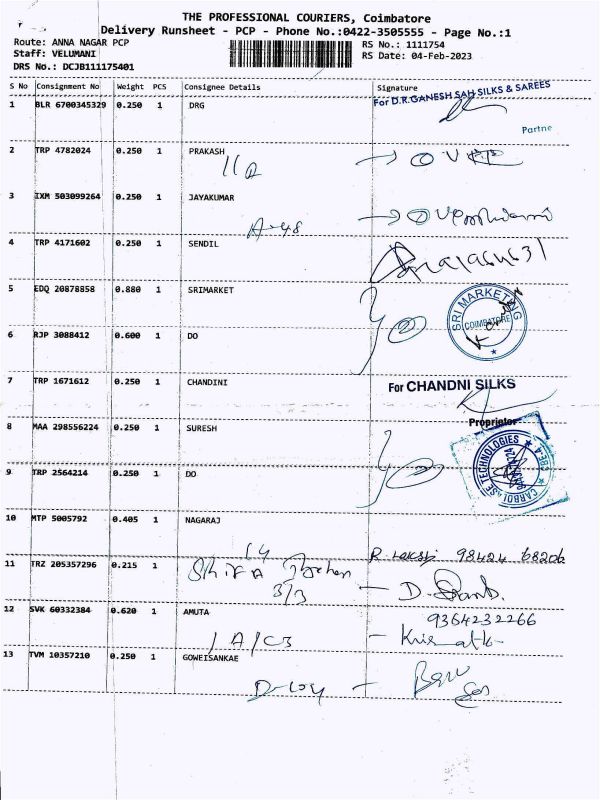 THE PROFESSIONAL COURIERS, Coimbatore
Delivery Runsheet - PCP - Phone No.:0422-3505555 - Page No.:1
Route: ANNA NAGAR PCP RS No.: 1111754
Staff: VELUMANI RS Date: 04-Feb-2023
DRS No.: DCJB111175401
S No Consignment No Weight PCS Consignee Details Signature
For D.R.GANESH SAH SILKS & SAREES
1 BLR 6700345329 0.250 1 DRG
Partne
2 TRP 4782024 0.250 1 PRAKASH
3 IXM 503099264 0.250 1 JAYAKUMAR
A-48
4 TRP 4171602 0.250 1 SENDIL
5 EDQ 20878858 0.880 1 SRIMARKET
SRI MARKETING
COIMBATORE
6 RJP 3088412 0.600 1 DO
7 TRP 1671612 0.250 1 CHANDINI
For CHANDNI SILKS
Proprietor
8 MAA 298556224 0.250 1 SURESH
9 TRP 2564214 0.250 1 DO
10 MTP 5005792 0.405 1 NAGARAJ
98424 68206
11 TRZ 205357296 0.215 1
3/3
12 SVK 60332384 0.620 1 AMUTA
9364232266
13 TVM 10357210 0.250 1 GOWEISANKAE